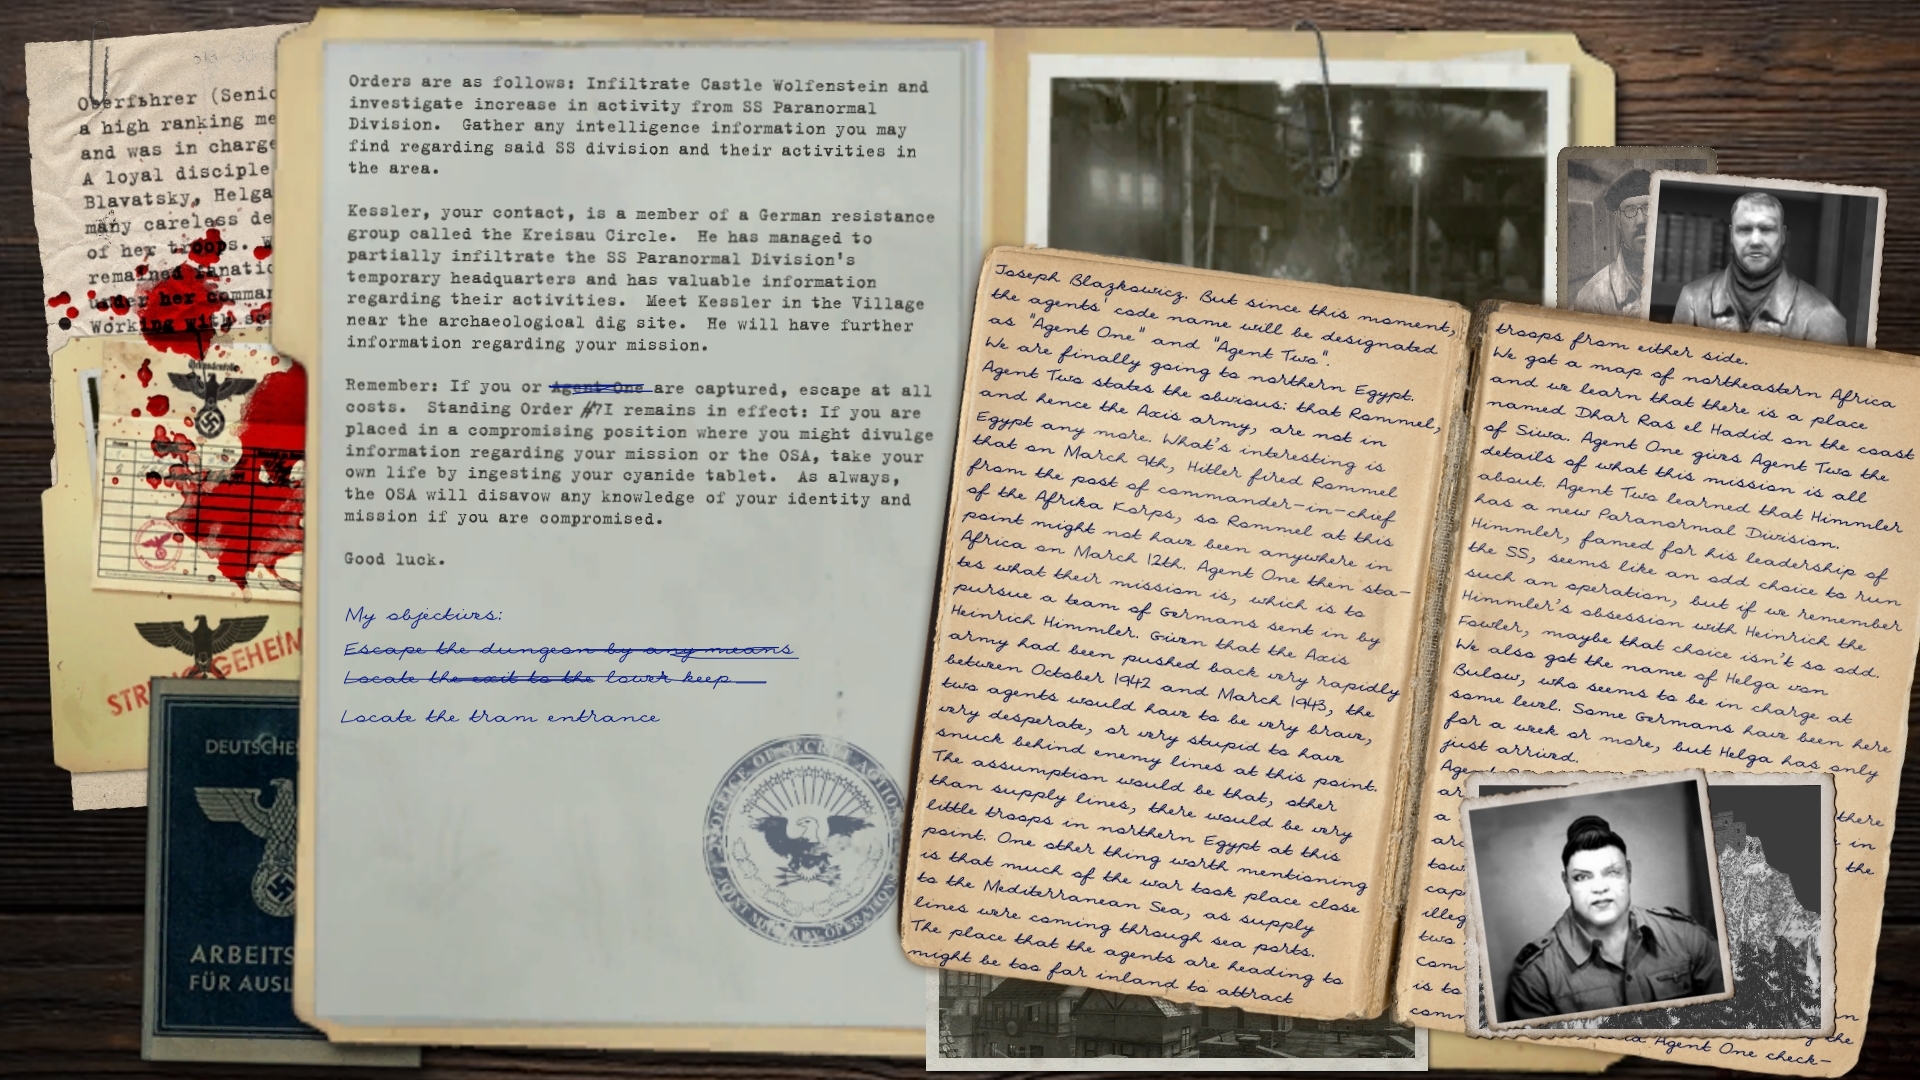 Oberführer (Senio
a high ranking me
and was in charge
A loyal disciple
Blavatsky, Helga
many careless de
of her troops. W
remained fanatic
under her comman
Working with sc
GEHEIM
DEUTSCHES
ARBEITS
FÜR AUSL
Orders are as follows: Infiltrate Castle Wolfenstein and
investigate increase in activity from SS Paranormal
Division. Gather any intelligence information you may
find regarding said SS division and their activities in
the area.
Kessler, your contact, is a member of a German resistance
group called the Kreisau Circle. He has managed to
partially infiltrate the SS Paranormal Division's
temporary headquarters and has valuable information
regarding their activities. Meet Kessler in the Village
near the archaeological dig site. He will have further
information regarding your mission.
Remember: If you or Agent One are captured, escape at all
costs. Standing Order #71 remains in effect: If you are
placed in a compromising position where you might divulge
information regarding your mission or the OSA, take your
own life by ingesting your cyanide tablet. As always,
the OSA will disavow any knowledge of your identity and
mission if you are compromised.
Good luck.
My objectives:
Escape the dungeon by any means
Locate the exit to the lower keep
Locate the tram entrance
OFFICE OF SECRET ACTIONS
Joseph Blazkowicz. But since this moment,
the agents' code name will be designated
as "Agent One" and "Agent Two".
We are finally going to northern Egypt.
Agent Two states the obvious: that Rommel,
and hence the Axis army, are not in
Egypt any more. What's interesting is
that on March 9th, Hitler fired Rommel
from the post of commander-in-chief
of the Afrika Korps, so Rommel at this
point might not have been anywhere in
Africa on March 12th. Agent One then sta-
tes what their mission is, which is to
pursue a team of Germans sent in by
Heinrich Himmler. Given that the Axis
army had been pushed back very rapidly
between October 1942 and March 1943, the
two agents would have to be very brave,
very desperate, or very stupid to have
snuck behind enemy lines at this point.
The assumption would be that, other
than supply lines, there would be very
little troops in northern Egypt at this
point. One other thing worth mentioning
is that much of the war took place close
to the Mediterranean Sea, as supply
lines were coming through sea ports.
The place that the agents are heading to
might be too far inland to attract
troops from either side.
We got a map of northeastern Africa
and we learn that there is a place
named Dhar Ras el Hadid on the coast
of Siwa. Agent One gives Agent Two the
details of what this mission is all
about. Agent Two learned that Himmler
has a new Paranormal Division.
Himmler, famed for his leadership of
the SS, seems like an odd choice to run
such an operation, but if we remember
Himmler's obsession with Heinrich the
Fowler, maybe that choice isn't so odd.
We also got the name of Helga von
Bulow, who seems to be in charge at
some level. Some Germans have been here
for a week or more, but Helga has only
just arrived.
there
a in
the
cap
illeg
two
com
is to
comm
the
Agent One check-